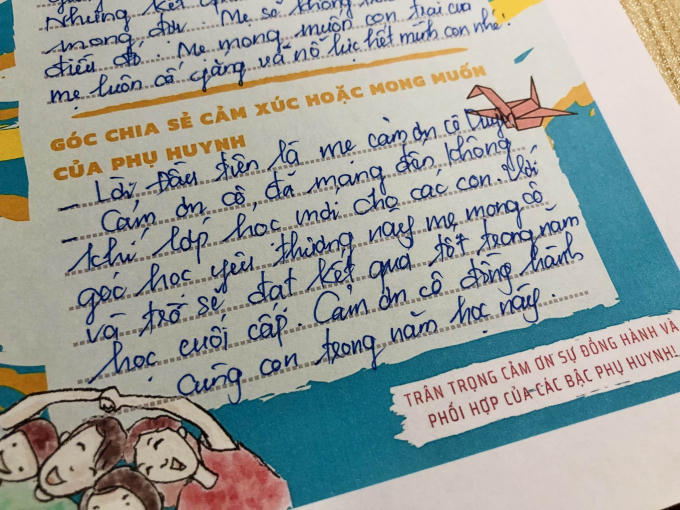 Những kết
mong đợi. Mẹ sẽ không
điều đó. Mẹ mong muốn con trai của
mẹ luôn cố gắng và nỗ lực hết mình con nhé!
GÓC CHIA SẺ CẢM XÚC HOẶC MONG MUỐN
CỦA PHỤ HUYNH
- Lời đầu tiên là mẹ cảm ơn cô
- Cảm ơn cô, đã mang đến không
khí lớp học mới cho các con. Với
góc học yêu thương này mẹ mong cô
và trò sẽ đạt kết quả tốt trong năm
học cuối cấp. Cảm ơn cô đồng hành
cùng con trong năm học này.
TRÂN TRỌNG CẢM ƠN SỰ ĐỒNG HÀNH VÀ
PHỐI HỢP CỦA CÁC BẬC PHỤ HUYNH!